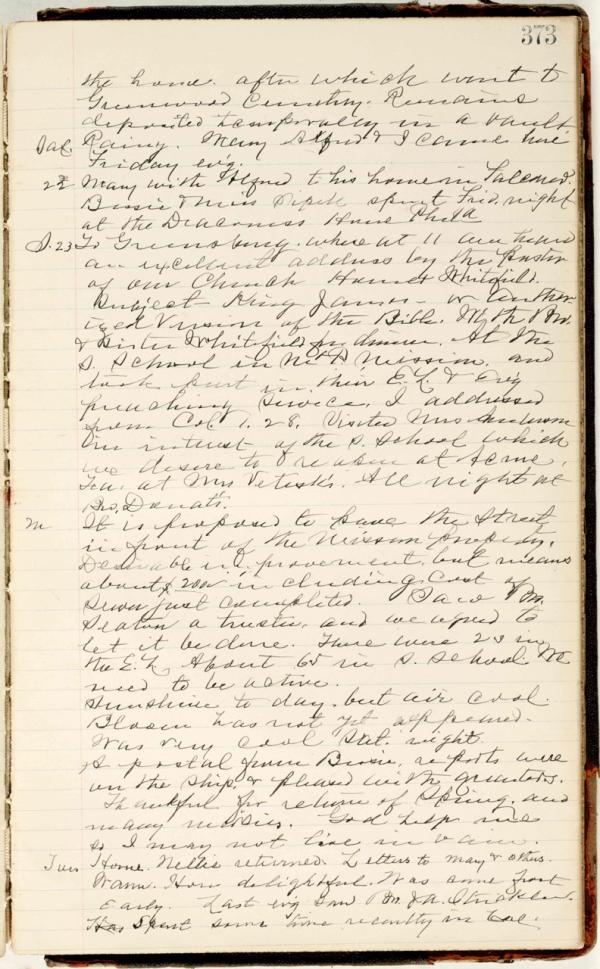 373
the home. after which went to
Greenwood Cemetery. Remains
deposited temporarily in a vault
Rainy. Mary Alfred & I came here
Friday evg.
Sat. 22 Mary with Alfred to his home in
Bessie & Miss spent Frid. night
at the Deaconess Home Phila
S. 23 To Greensburg. where at 11 am heard
an excellent address by the Pastor
of our Church Whitfield.
Subject King James - or author
ized Version of the Bible. With Bro.
& Sister Whitfield for dinner. At the
S. School in Mission, and
took part in their E. L. & Evg
preaching service. I addressed
from Col 1.28. Visited Mrs Anderson
in interest of the S. School which
we desire to reopen at Acme.
Tea at Mrs All night at
Bro. Donat's.
M It is proposed to pave the Street
in front of the Mission property.
Desirable improvement, but means
about $2000 including cost of
sewer just completed. Saw Bro.
Seaton a trustee, and we agreed to
let it be done. There were 23 in
the E. L. About 65 in S. School. We
need to be active.
Sunshine to day, but air cool.
Bloom has not yet appeared.
Was very cool Sat. night.
A postal from Bessie, reports were
on the ship, & pleased with the
Thankful for return of Spring, and
many mercies. God help me
so I may not live in vain.
Tues Home. Nellie returned. Letters to Mary & others.
Warm. How delightful. Was some frost
early. Last evg saw Bro. J. A.
Has spent some time recently in